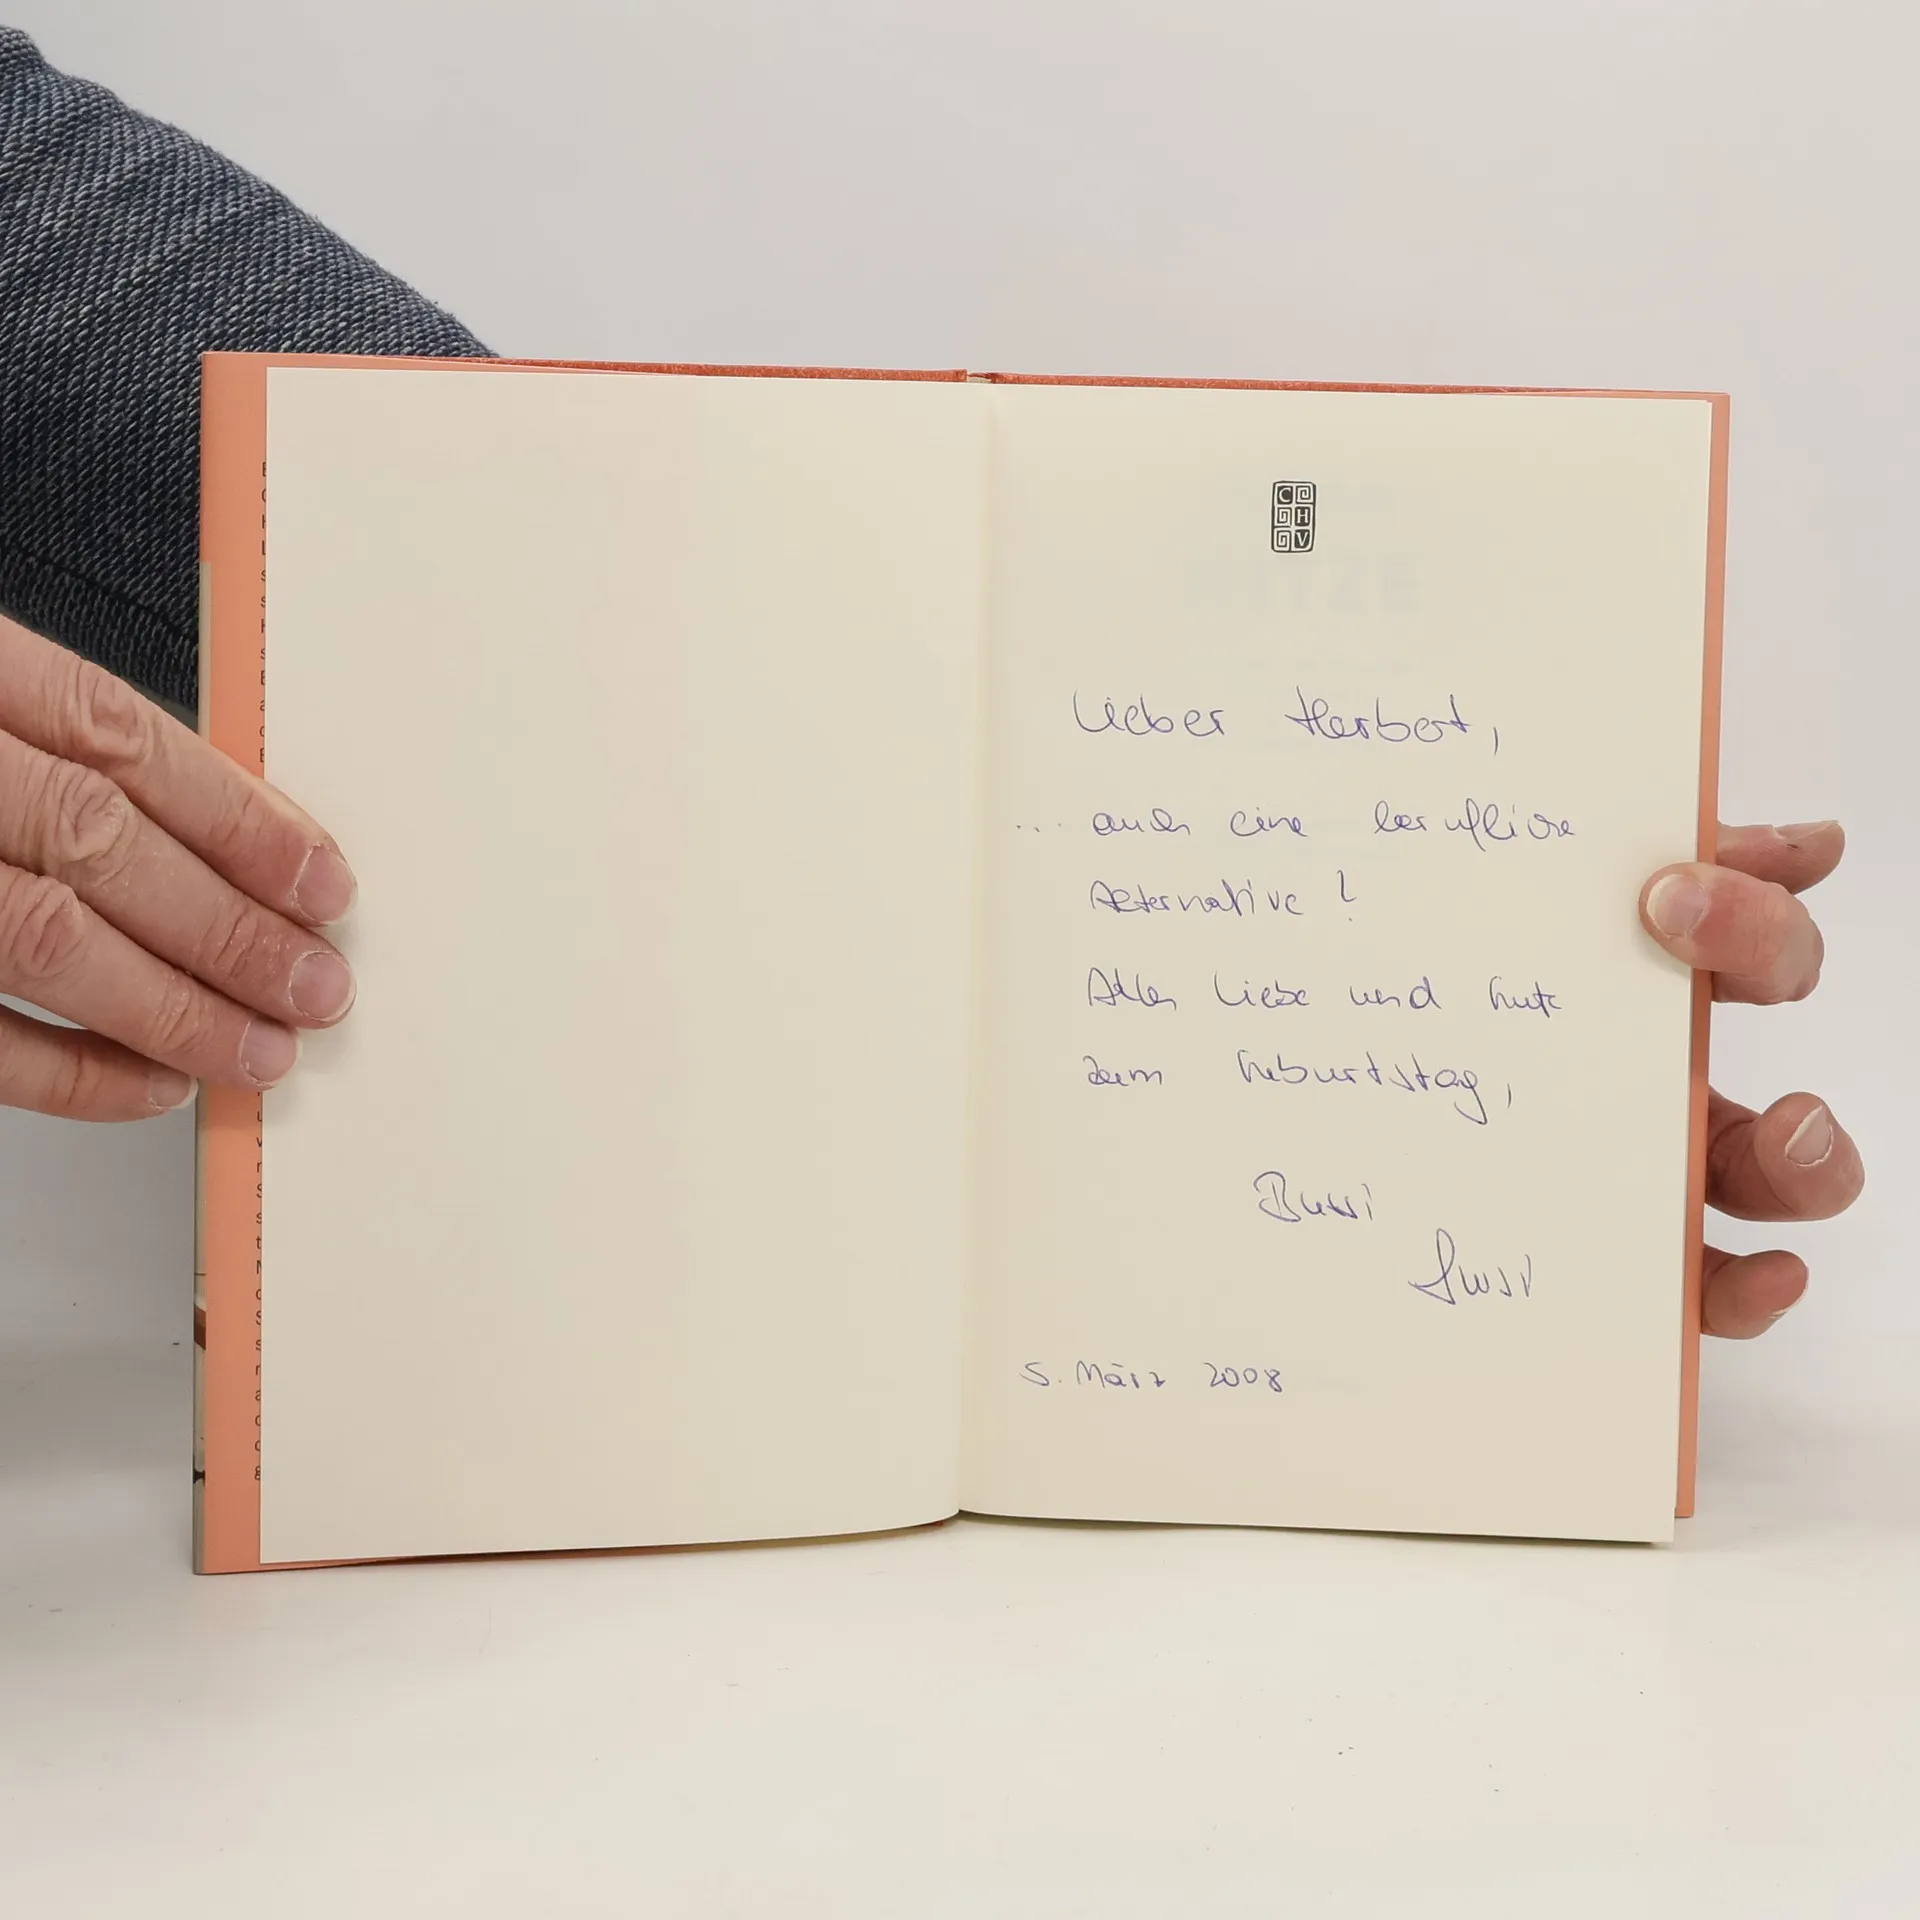 C
H
V
Lieber Herbert,
... auch eine berufliche
Alternative!
Alles Liebe und Gute
zum Geburtstag,
Bussi
Susi
5. März 2008